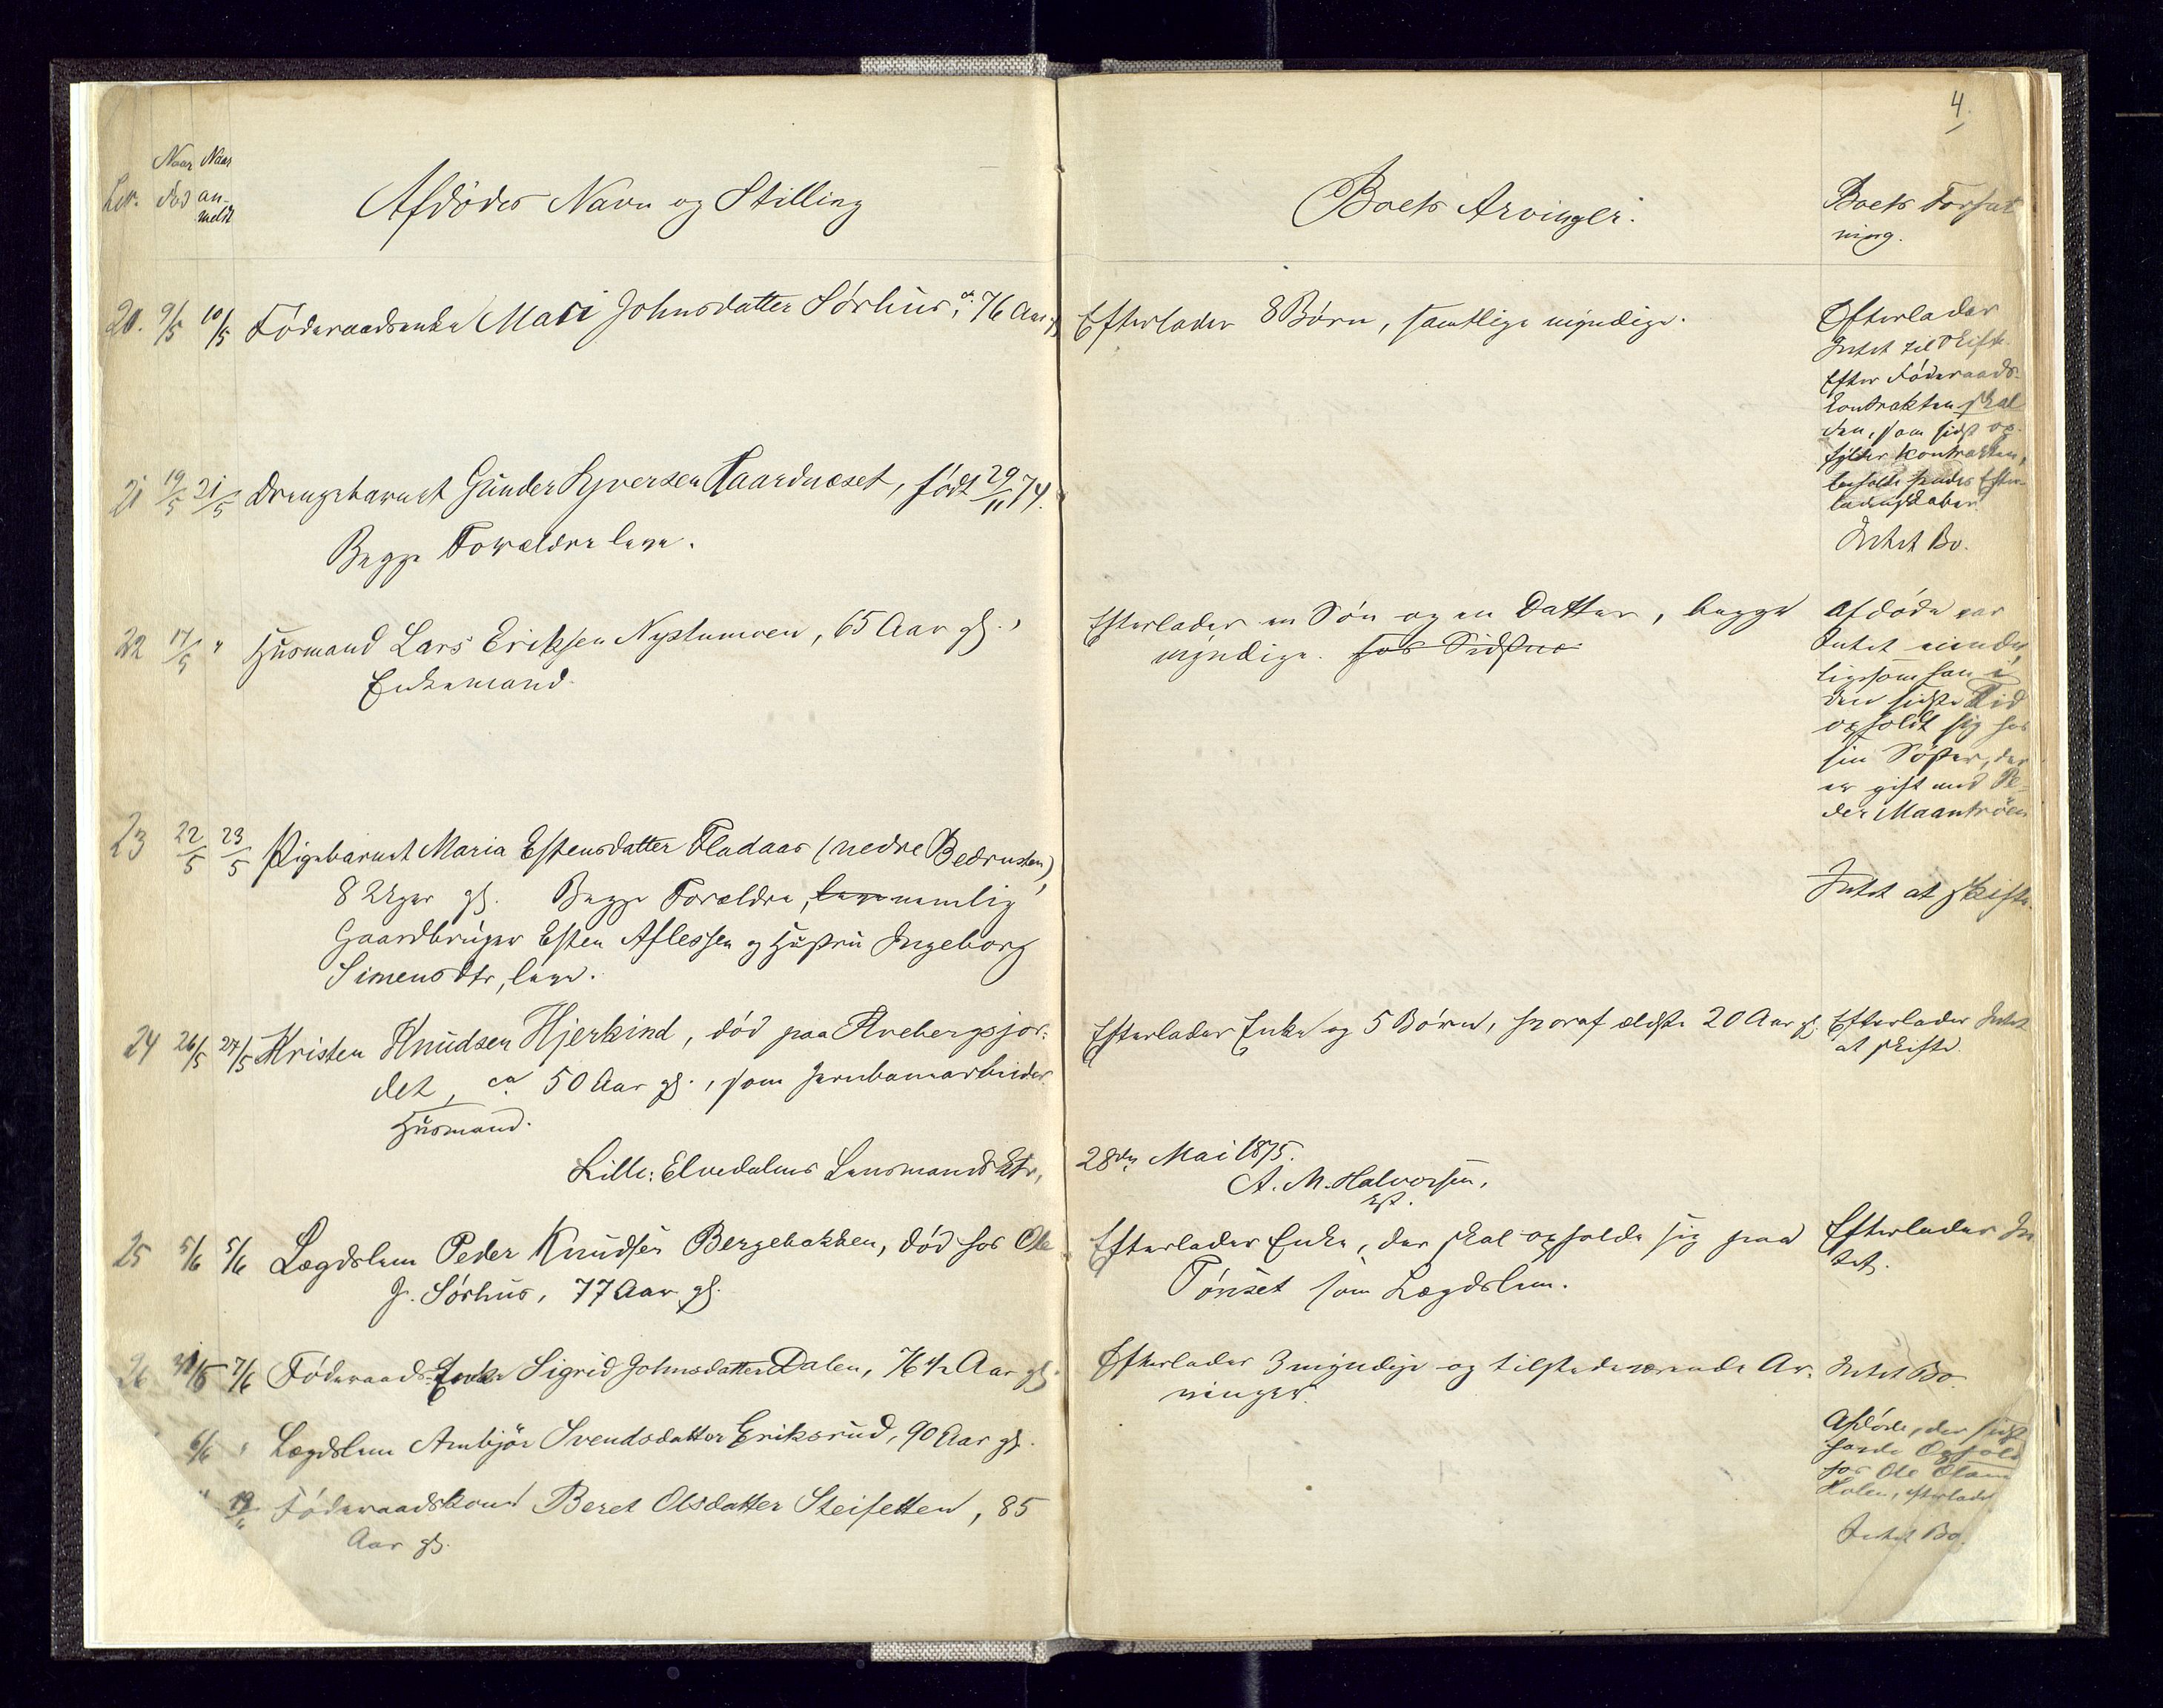 4.
Naar Naar
Lnr. død an-
meldt
Afdødes Navn og Stilling
Boets Arvinger.
Boets Forfat
ning.
20. 9/5 10/5 Føderaadsenke Mari Johnsdatter Sørhus, 76 Aar gl.
Efterlader 8 Børn, samtlige myndige.
Efterlader
Intet til Skifte.
Efter Føderaads-
kontrakten skal
den, som sidst op-
fylder Kontrakten,
beholde hendes Efter-
ladenskaber.
21 19/5 21/5 Drengebarnet Gunder Syversen Haardneset, født 29/11 74.
Begge Forældre leve.
Intet Bo.
22 17/5 " Husmand Lars Eriksen Nystumoen, 65 Aar gl.,
Enkemand.
Efterlader en Søn og en Datter, begge
myndige. hos Sidstne
Afdøde var
Intet eiende,
ligesom han i
den sidste Tid
opholdt sig hos
sin Søster, der
er gift med Pe-
der Maantrøen
23 22/5 23/5 Pigebarnet Maria Estensdatter Fladaas (nedre Bedrusten),
8 Uger gl. Begge Forældre, leve nemlig
Gaardbruger Esten Aflessen og Hustru Ingeborg
Simensdtr, leve.
Intet at skifte.
24 26/5 27/5 Kristen Knudsen Hjerkind, død paa Kvebergsjor-
det, ca 50 Aar gl., som Jernbanearbeider.
Husmand.
Efterlader Enke og 5 Børn, hvoraf ældste 20 Aar gl.
Efterlader Intet
at skifte.
Lille-Elvedalens Lensmandsktr,
28de Mai 1875.
A. M. Halvorsen,
Kst.
25 5/6 5/6 Lægdslem Peder Knudsen Bergebakken, død hos Ole
J. Sørhus, 77 Aar gl.
Efterlader Enke, der skal opholde sig paa
Tønset som Lægdslem.
Efterlader In
tet.
26 31/5 7/6 Føderaads-Enke Sigrid Johnsdatter Dalen, 76 1/2 Aar gl.
Efterlader 3 myndige og tilstedeværende Ar-
vinger.
Intet Bo.
6/6 " Lægdslem Ambjør Svendsdatter Eriksrud, 90 Aar gl.
Afdøde, der sidst
havde Ophold
hos Ole
Holen, efterlader
" 19/" Føderaadskone Beret Olsdatter Steisetten, 85
Aar gl.
Intet Bo.